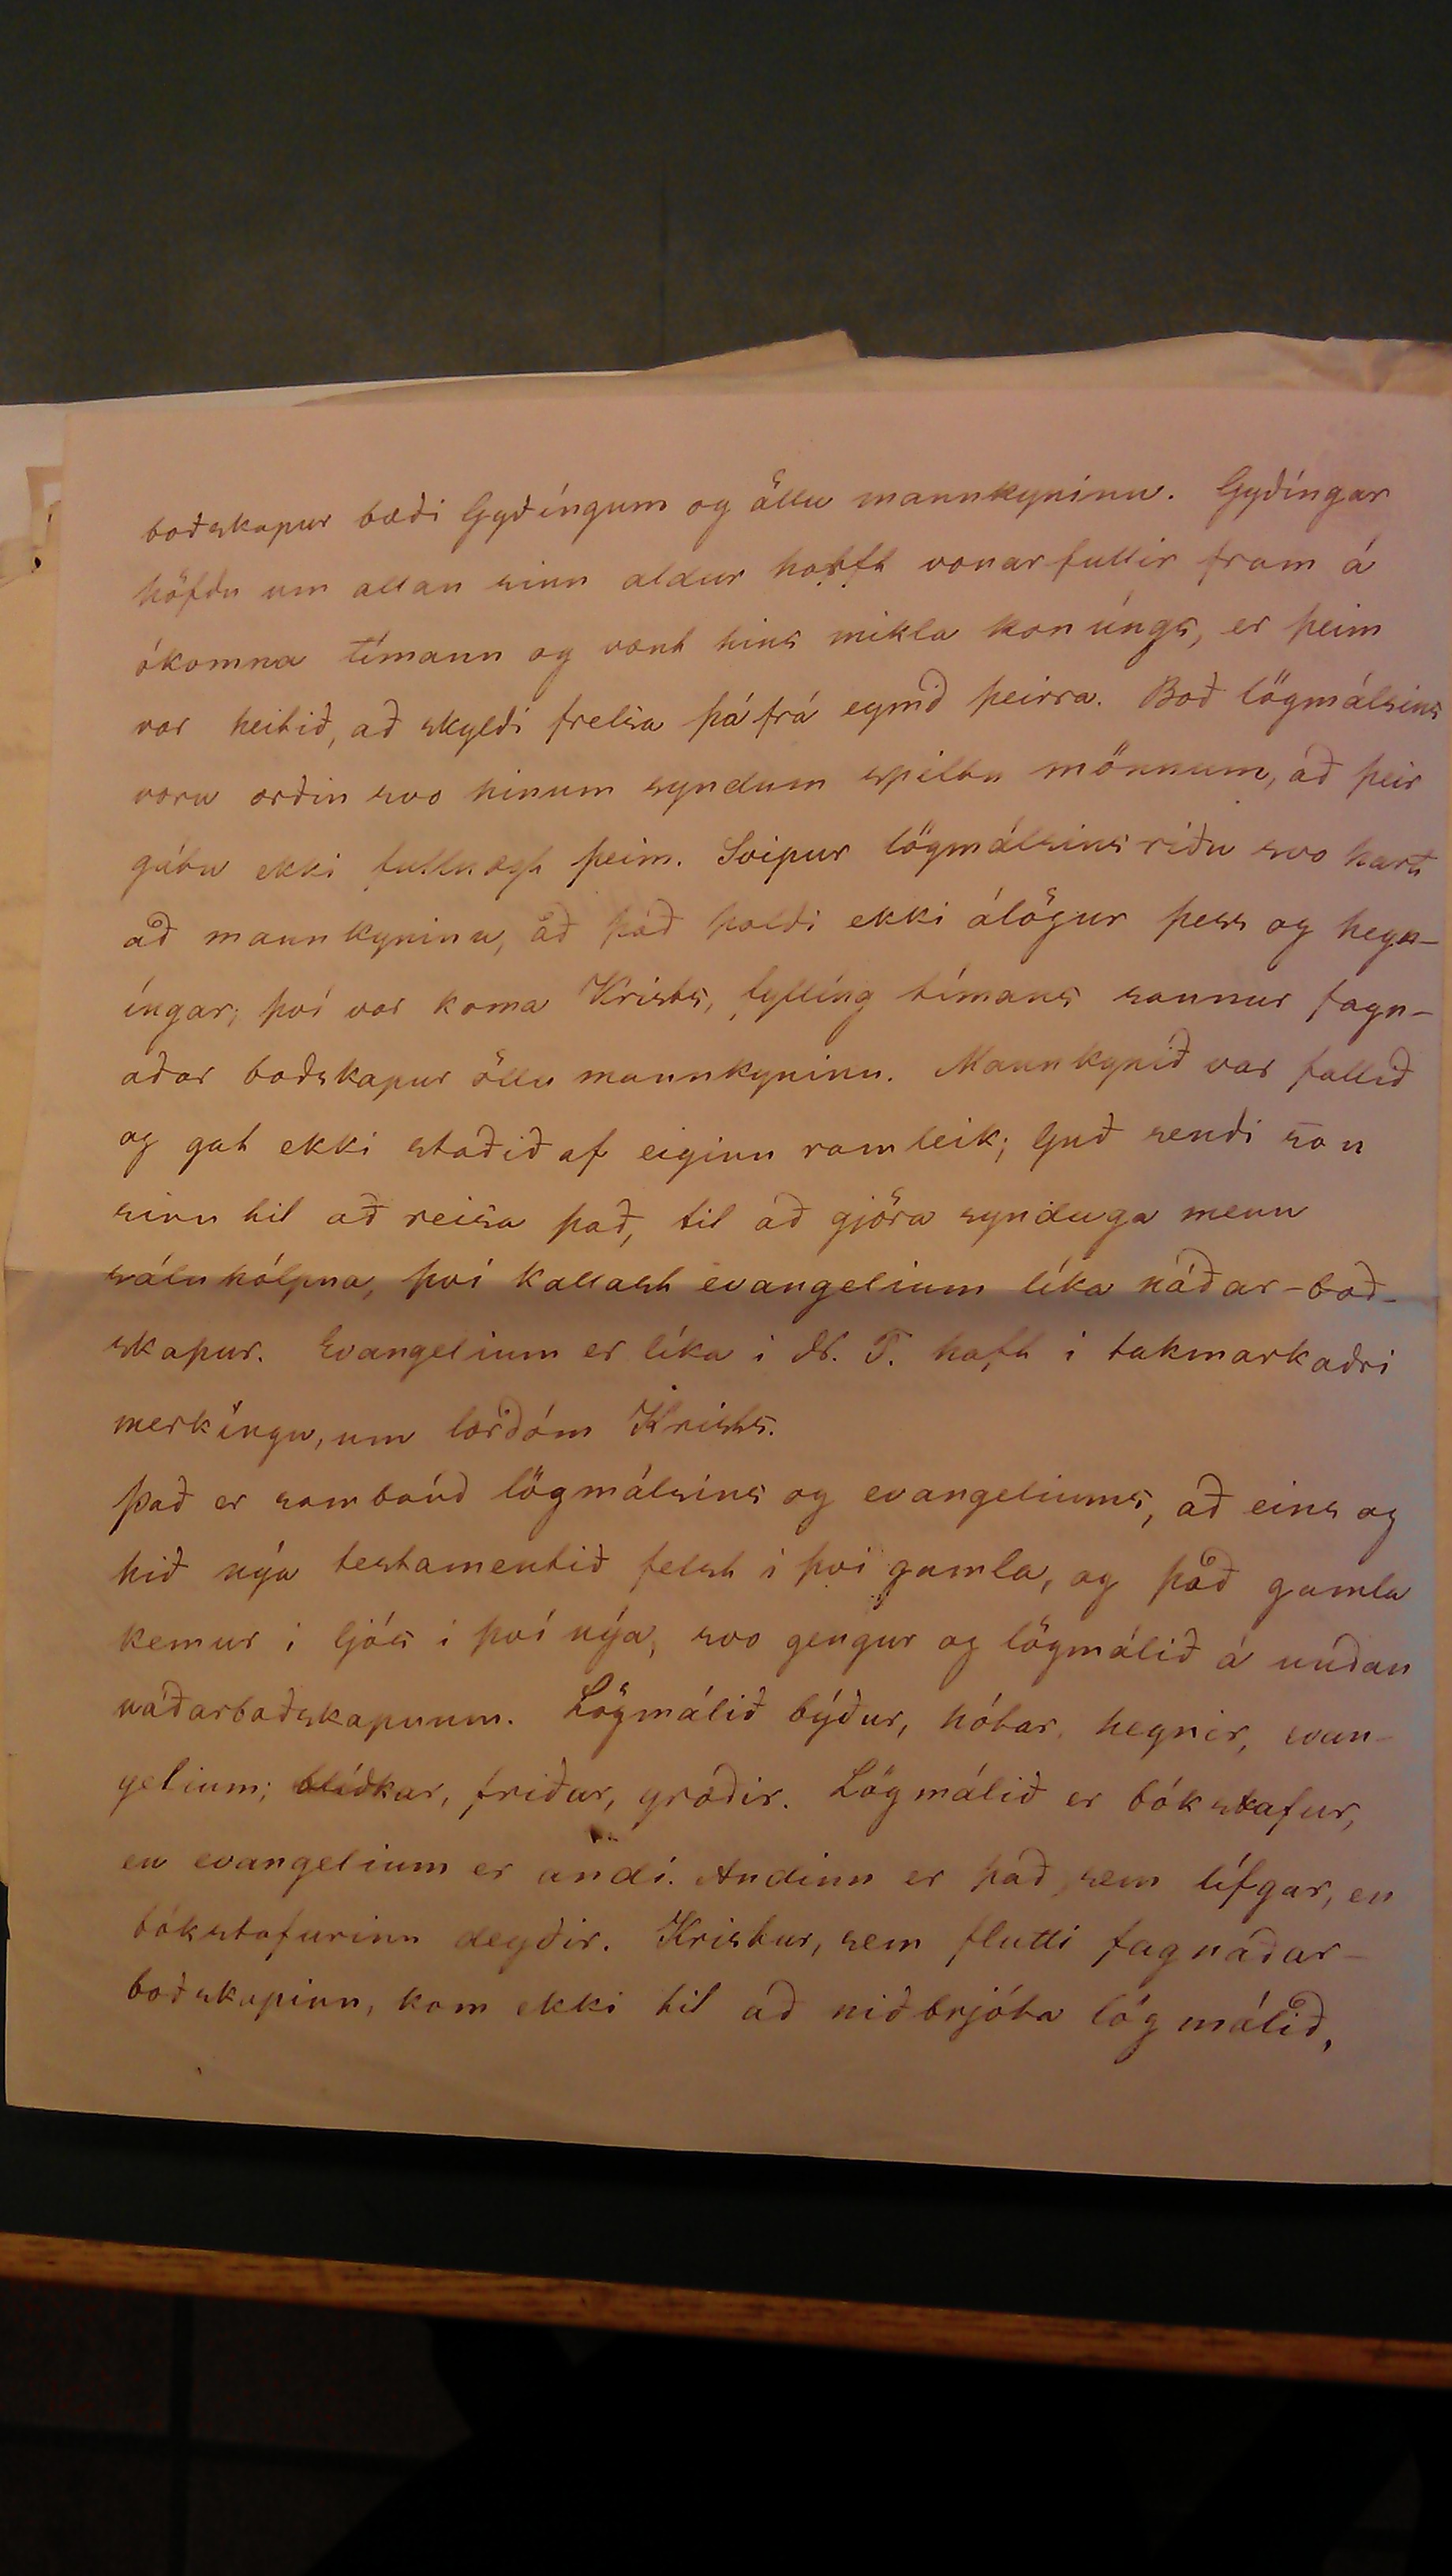 boðskapur bæði Gyðíngum og öllu mannkyninu. Gyðíngar
höfðu um allan sinn aldur horft vonarfullir fram á
ókomna tímann og vænt hins mikla konúngs, er þeim
var heitið, að skyldi frelsa þá frá eymd þeirra. Boð lögmálsins
voru orðin svo hinum syndum spiltu mönnum, að þeir
gátu ekki fullnægt þeim. Svipur lögmálsins riðu svo hart
að mannkyninu, að það þoldi ekki álögur þess og hegn-
íngar; því var koma Krists, fyllíng tímans sannur fagn-
aðar boðskapur öllu mannkyninu. Mannkynið var fallið
og gat ekki staðið af eiginn ramleik; Guð sendi son
sinn til að reisa það, til að gjöra synduga menn
sáluhólpna, því kallast evangelium líka náðar-boð-
skapur. Evangelium er líka i N. T. haft i takmarkaðri
merkíngu, um lærdóm Krists.
Það er samband lögmálsins og evangeliums, að eins og
hið nýa testamentið felst i því gamla, og það gamla
kemur i ljós i því nýa, svo gengur og lögmálið á undan
náðarboðskapnum. Lögmálið býður, hótar, hegnir, evan-
gelium; blíðkar, friðar, græðir. Lögmálið er bókstafur,
en evangelium er andi. Andinn er það, sem lífgar, en
bókstafurinn deyðir. Kristur, sem flutti fagnaðar-
boðskapinn, kom ekki til að niðbrjóta lögmálið,